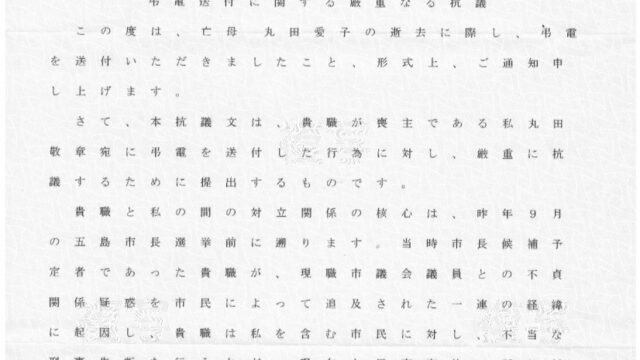 弔電送付に関する厳重なる抗議
この度は、亡母 丸田愛子の逝去に際し、弔電
を送付いただきましたこと、形式上、ご通知申
し上げます。
さて、本抗議文は、貴職が喪主である私丸田
敬章宛に弔電を送付した行為に対し、厳重に抗
議するために提出するものです。
貴職と私の間の対立関係の核心は、昨年9月
の五島市長選挙前に遡ります。当時市長候補予
定者であった貴職が、現職市議会議員との不貞
関係疑惑を市民によって追及された一連の経緯
に起因し、貴職は私を含む市民に対し、不当な